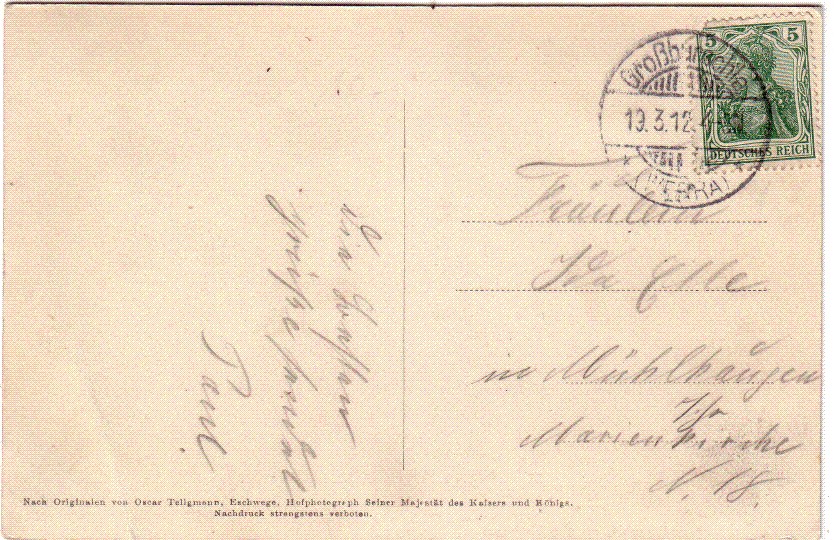 Großburschla
19.3.12.
(WERRA)
5 5
DEUTSCHES REICH
Fräulein
Ida Elle
in Mühlhausen
i/Th
Marienkirche
N. 18.
Die besten
Grüße sendet
Paul
Nach Originalen von Oscar Tellgmann, Eschwege, Hofphotograph Seiner Majestät des Kaisers und Königs.
Nachdruck strengstens verboten.